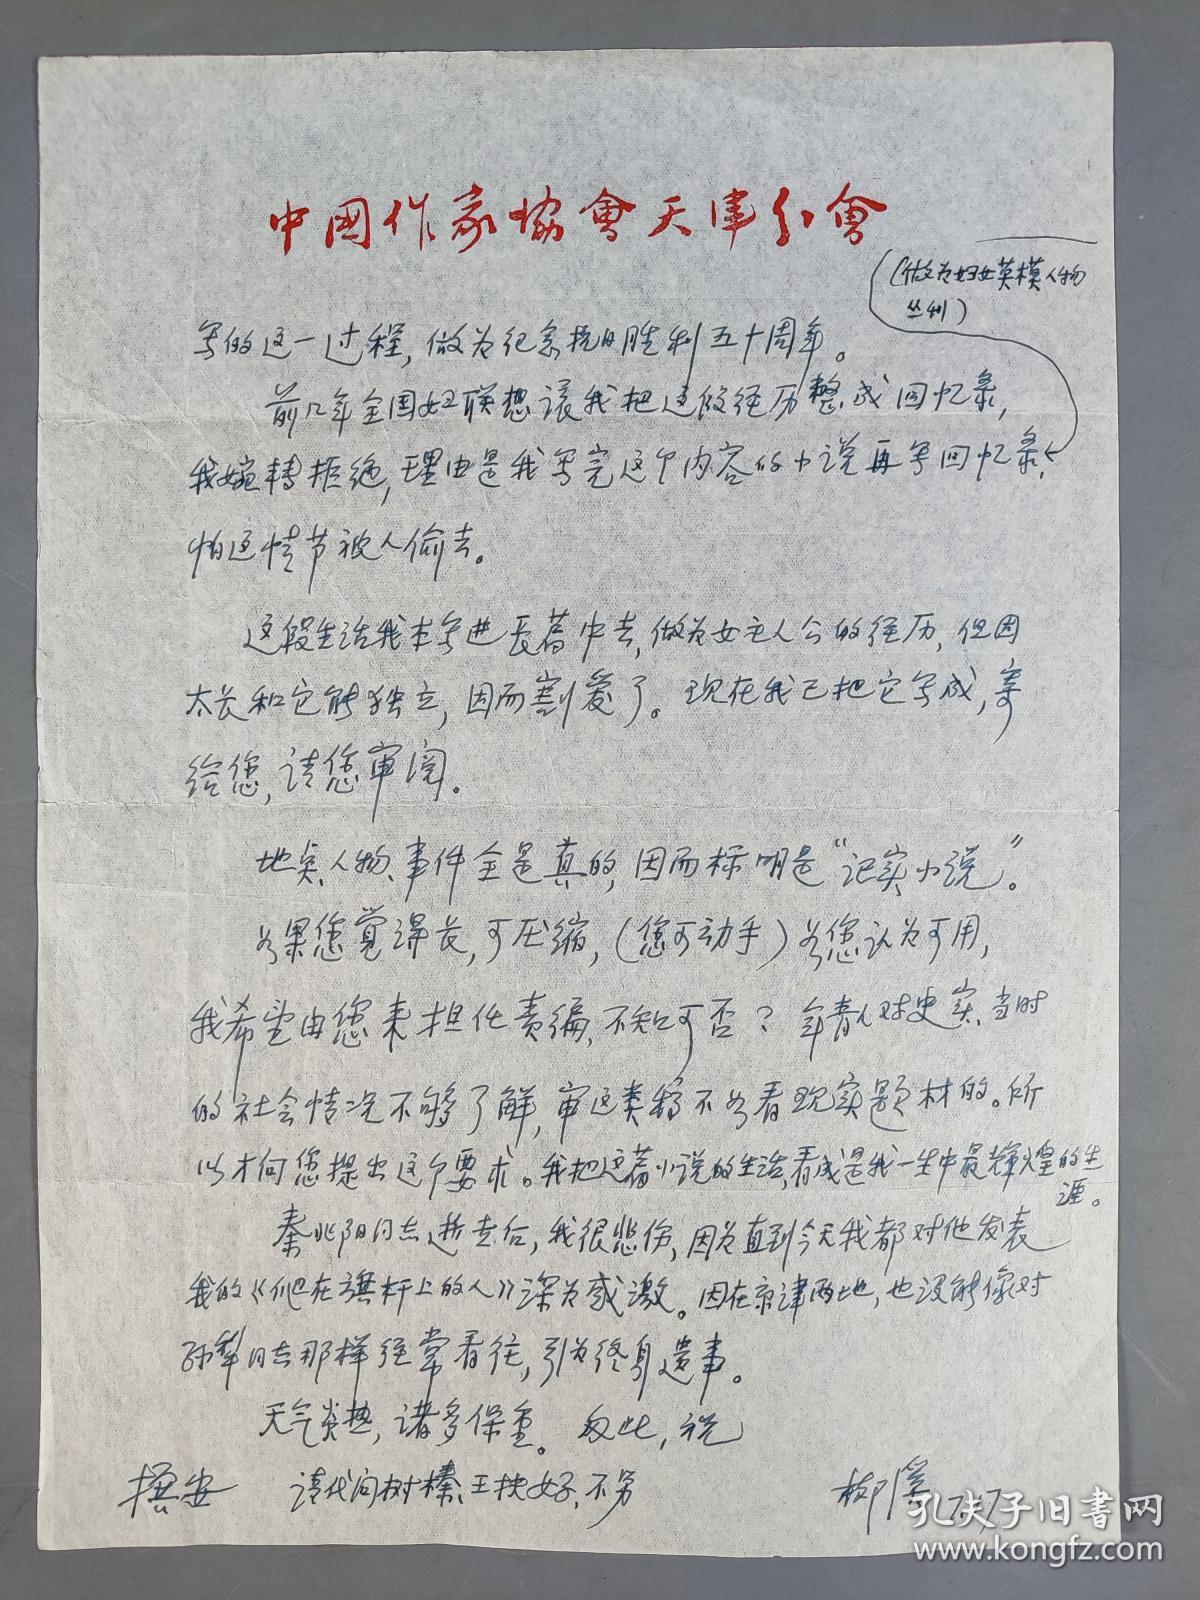 中國作家協會天津分會
(做为妇女英模人物
丛刊)
写的这一过程，做为纪念抗日胜利五十周年。
前几年全国妇联想讓我把这段经历整成回忆录，
我婉转拒绝，理由是我写完这个内容的小说再写回忆录，
怕这情节被人偷去。
这段生活我本写进长篇中去，做为女主人公的经历，但因
太长和它能独立，因而割爱了。现在我已把它写成，寄
给您，请您审阅。
地点、人物、事件全是真的，因而标明是“记实小说”。
如果您觉得长，可压缩，(您可动手)如您认为可用，
我希望由您来担任责编，不知可否？年青人对史实、当时
的社会情况不够了解，审这类稿不如看现实题材的。所
以才向您提出这个要求。我把这篇小说的生活，看成是我一生中最辉煌的生
涯。
秦兆阳同志逝去后，我很悲伤，因为直到今天我都对他发表
我的《爬在旗杆上的人》深为感激。因在京津两地，也没能像对
孙犁同志那样经常看往，引为终身遗事。
天气炎热，诸多保重。匆此，祝
撰安
请代问树榛、王扶好，不另
柳溪 7.17
孔夫子旧书网
www.kongfz.com